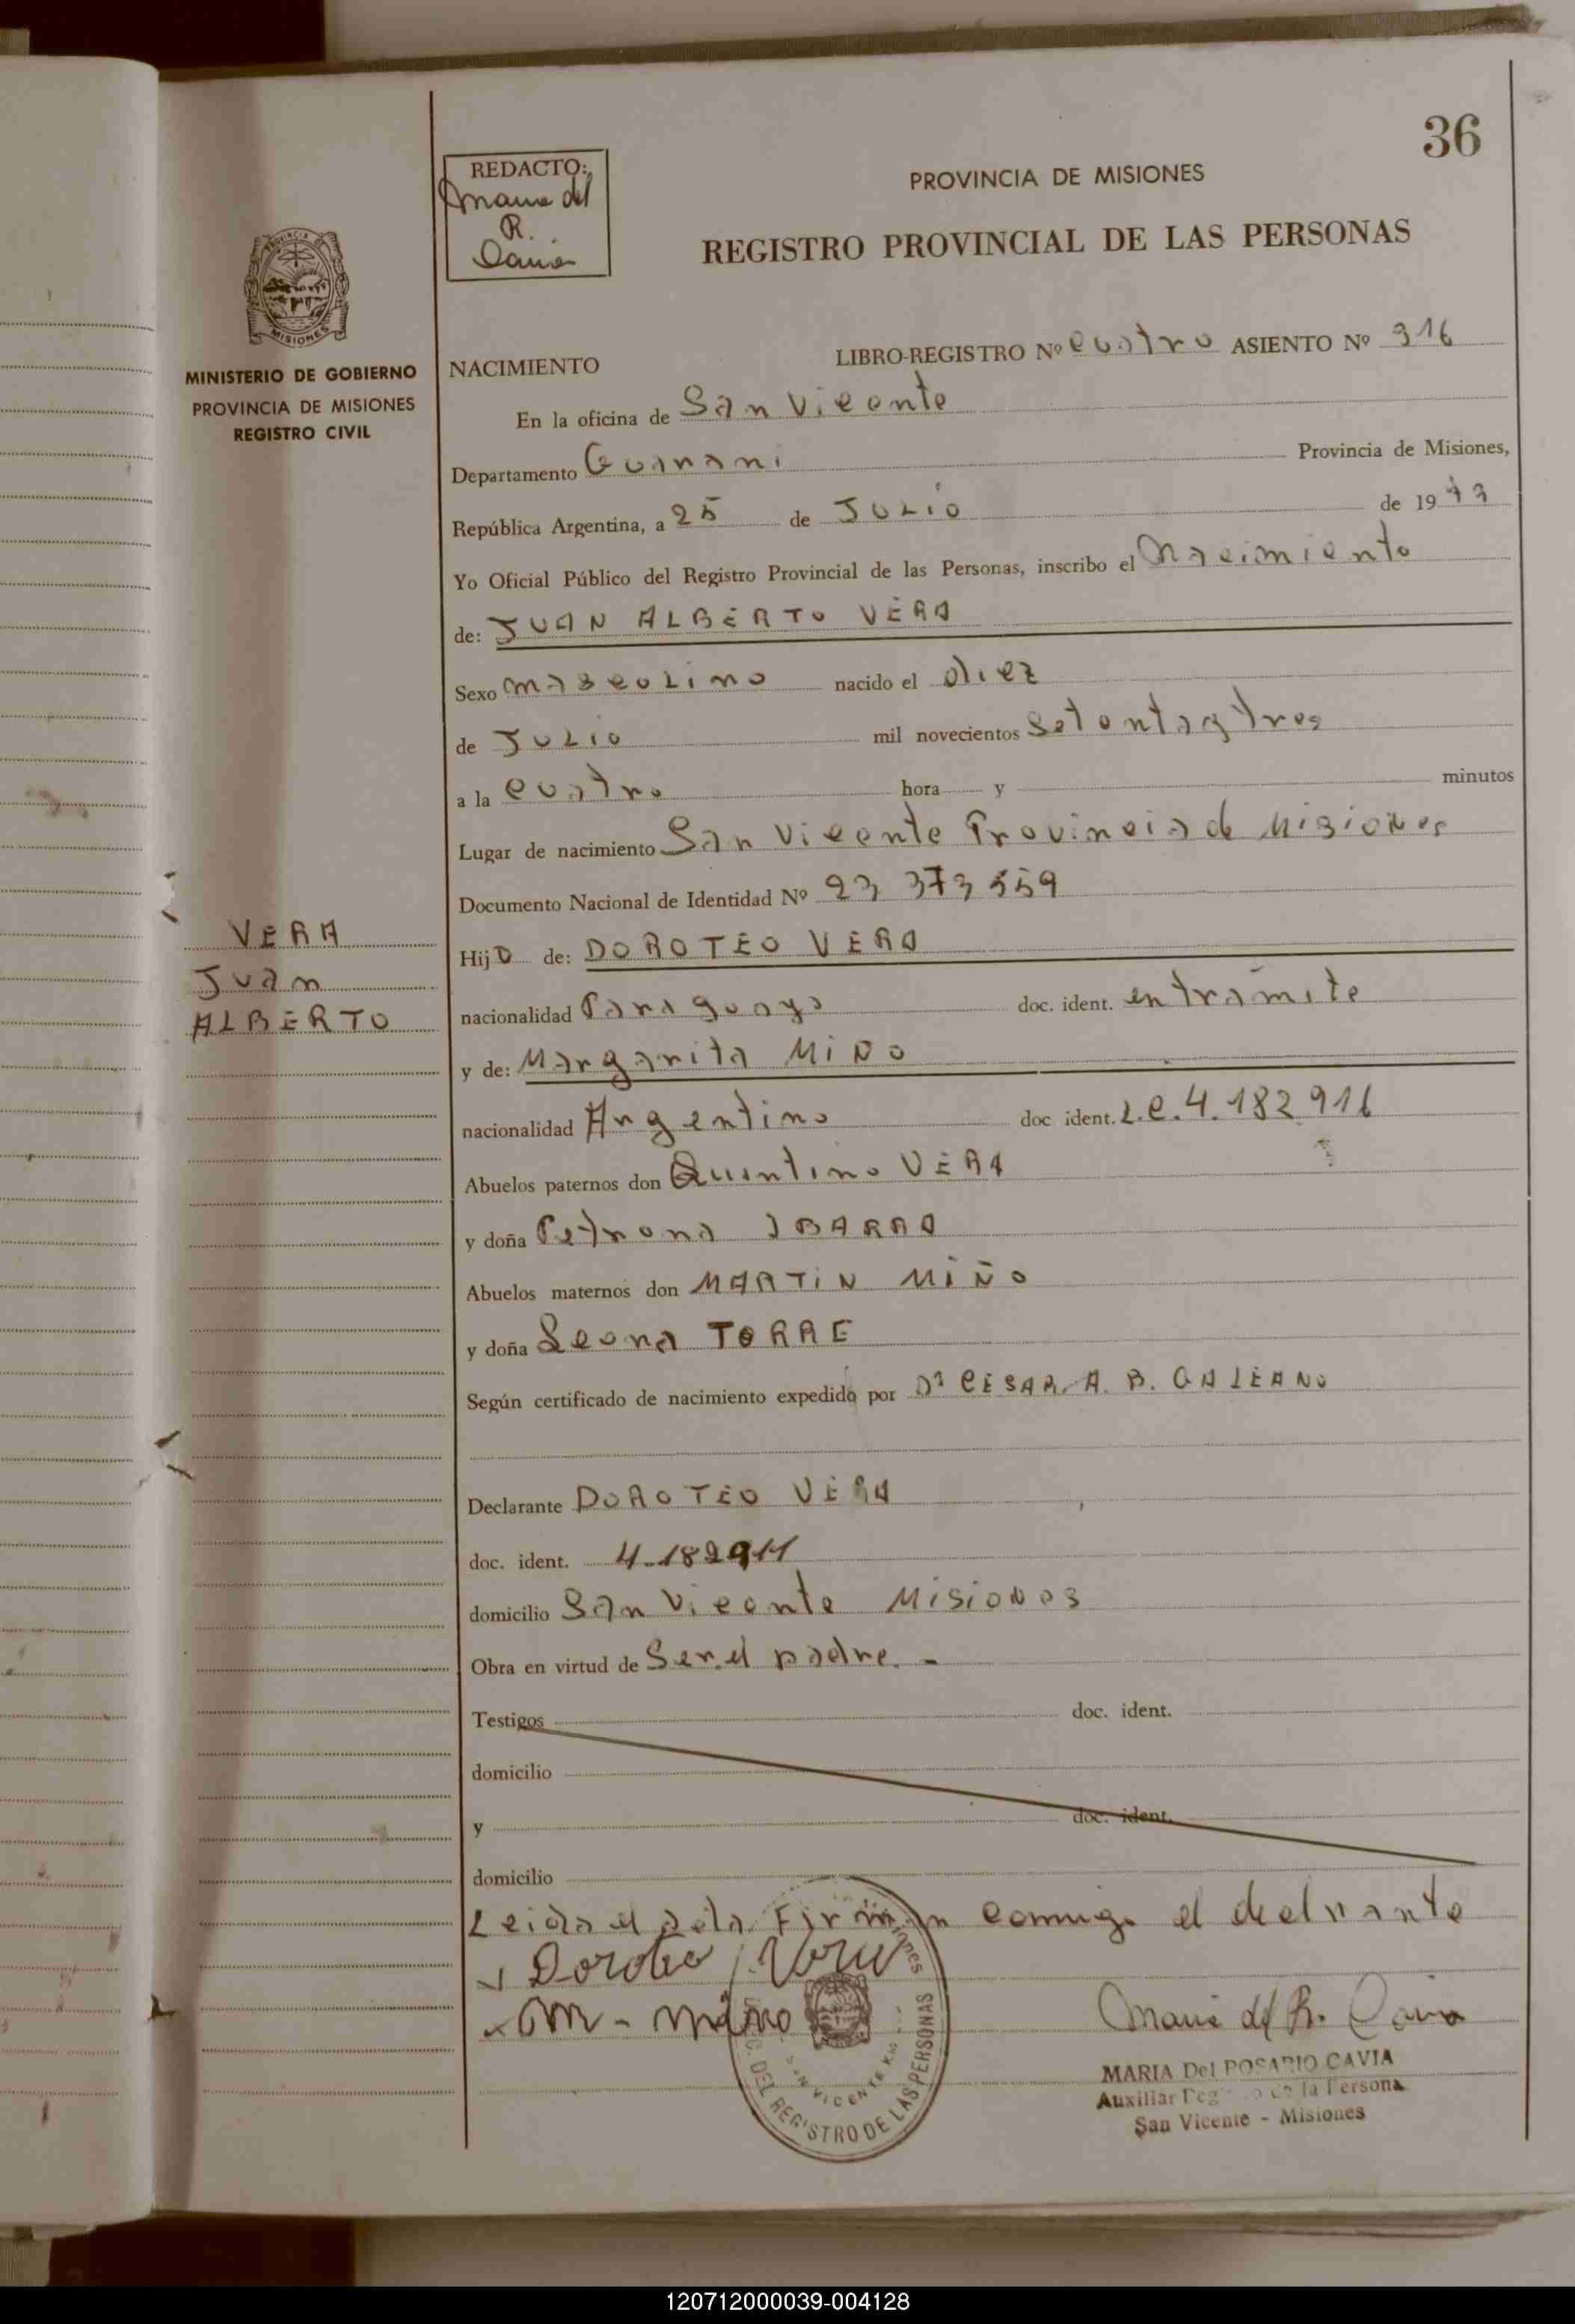 36
REDACTO:
Maria del
R.
Cavia
PROVINCIA DE MISIONES
REGISTRO PROVINCIAL DE LAS PERSONAS
PROVINCIA DE
MISIONES
MINISTERIO DE GOBIERNO
PROVINCIA DE MISIONES
REGISTRO CIVIL
NACIMIENTO LIBRO-REGISTRO Nº cuatro ASIENTO Nº 316
En la oficina de San Vicente
Departamento Guarani Provincia de Misiones,
República Argentina, a 25 de JULio de 1973
Yo Oficial Público del Registro Provincial de las Personas, inscribo el Nacimiento
de: JUAN ALBERTO VERA
Sexo masculino nacido el diez
de JULio mil novecientos Setentaytres
a la cuatro hora y minutos
Lugar de nacimiento San Vicente Provincia de Misiones
Documento Nacional de Identidad Nº 23 373 559
Hijo de: DOROTEO VERA
nacionalidad Paraguaya doc. ident. en tramite
y de: Margarita MiÑo
nacionalidad Argentina doc ident. L.C. 4.182916
Abuelos paternos don Quintino VERA
y doña Petrona IBARRA
Abuelos maternos don MARTIN MIÑO
y doña Leona TORRE
Según certificado de nacimiento expedido por Dr CESAR A. B. GALEANO
Declarante DOROTEO VERA
doc. ident. 4.182911
domicilio San Vicente Misiones
Obra en virtud de Ser el padre. -
Testigos doc. ident.
domicilio
y doc. ident.
domicilio
Leida el acta Firman conmigo el declarante
x Doroteo Vera
x M - Miño
Maria del R. Cavia
MARIA Del ROSARIO CAVIA
Auxiliar de la Persona
San Vicente - Misiones
DEL REGISTRO DE LAS PERSONAS
SAN VICENTE
VERA
Juan
ALBERTO
120712000039-004128